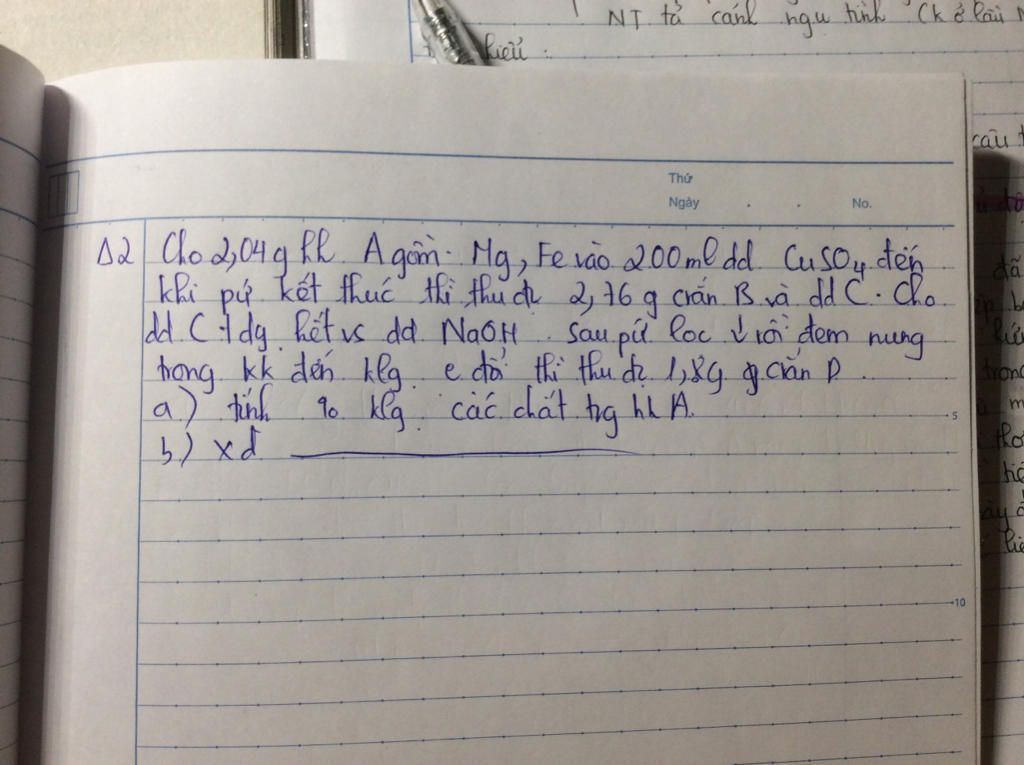 NT tả cảnh ngụ tình (k ở lầu N
kiều.
Thứ
Ngày . . No.
Δ2 Cho 2,04g hh A gồm Mg, Fe vào 200ml dd CuSO4 đến
khi pứ kết thúc thì thu đc 2,76 g crắn B và dd C. Cho
dd C tdg hết vs dd NaOH. sau pứ lọc ↓ rồi đem nung
trong kk đến klg k đổi thì thu đc 1,8g crắn D
a) tính % klg các chất trg hh A.
5
b) xđ
10
câu t
đã
trong